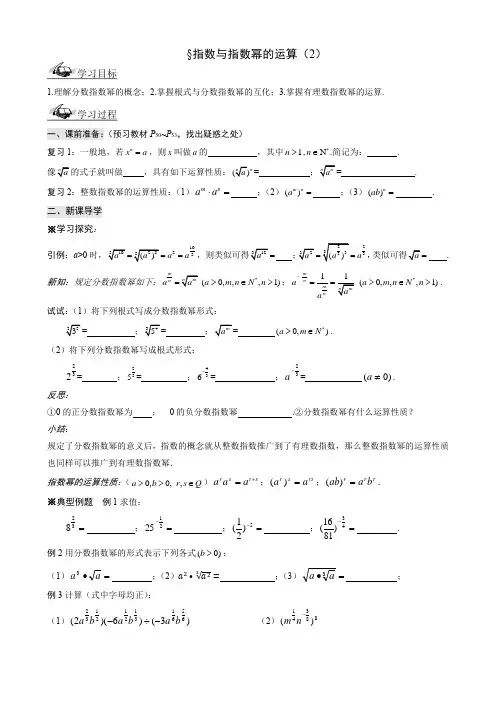 §指数与指数幂的运算（2）
学习目标
1.理解分数指数幂的概念；2.掌握根式与分数指数幂的互化；3.掌握有理数指数幂的运算.
学习过程
一、课前准备：（预习教材 P50~P53，找出疑惑之处）
复习1：一般地，若 xⁿ = a ，则 x 叫做 a 的 ，其中 n>1, n∈N*. 简记为： .
像 ⁿ√a 的式子就叫做 ，具有如下运算性质：(ⁿ√a)ⁿ = ；ⁿ√aⁿ = .
复习2：整数指数幂的运算性质：（1） a^m·a^n = ；（2）(a^m)^n = ；（3）(ab)^n = .
二、新课导学
※学习探究：
新知：规定分数指数幂如下：a^(m/n) = ⁿ√a^m (a>0,m,n∈N*,n>1)；a^(-m/n) = 1/a^(m/n) = 1/ⁿ√a^m (a>0,m,n∈N*,n>1).
试试：（1）将下列根式写成分数指数幂形式：
= ； = ； = (a>0,m∈N*).
（2）将下列分数指数幂写成根式形式：
反思：
①0的正分数指数幂为 ； 0的负分数指数幂 .②分数指数幂有什么运算性质？
小结：
规定了分数指数幂的意义后，指数的概念就从整数指数推广到了有理数指数，那么整数指数幂的运算性质
也同样可以推广到有理数指数幂.
指数幂的运算性质：（a>0,b>0, r,s∈Q）a^r a^s = a^(r+s)；(a^r)^s = a^(rs)；(ab)^r = a^r b^r.
※典型例题 例1求值：
8^(2/3) = ；25^(-1/2) = ；(1/2)^(-5) = ；(16/81)^(-3/4) = .
例2用分数指数幂的形式表示下列各式(b>0)：
（1）a³•√a = ；（2）a²•³√a² = ；（3）√(a•³√a) = ；
例3计算（式中字母均正）：
（1）(2a^(2/3)b^(1/2))(−6a^(1/2)b^(1/3))÷(−3a^(1/6)b^(5/6)) （2）(m^(1/4)n^(-3/8))^8